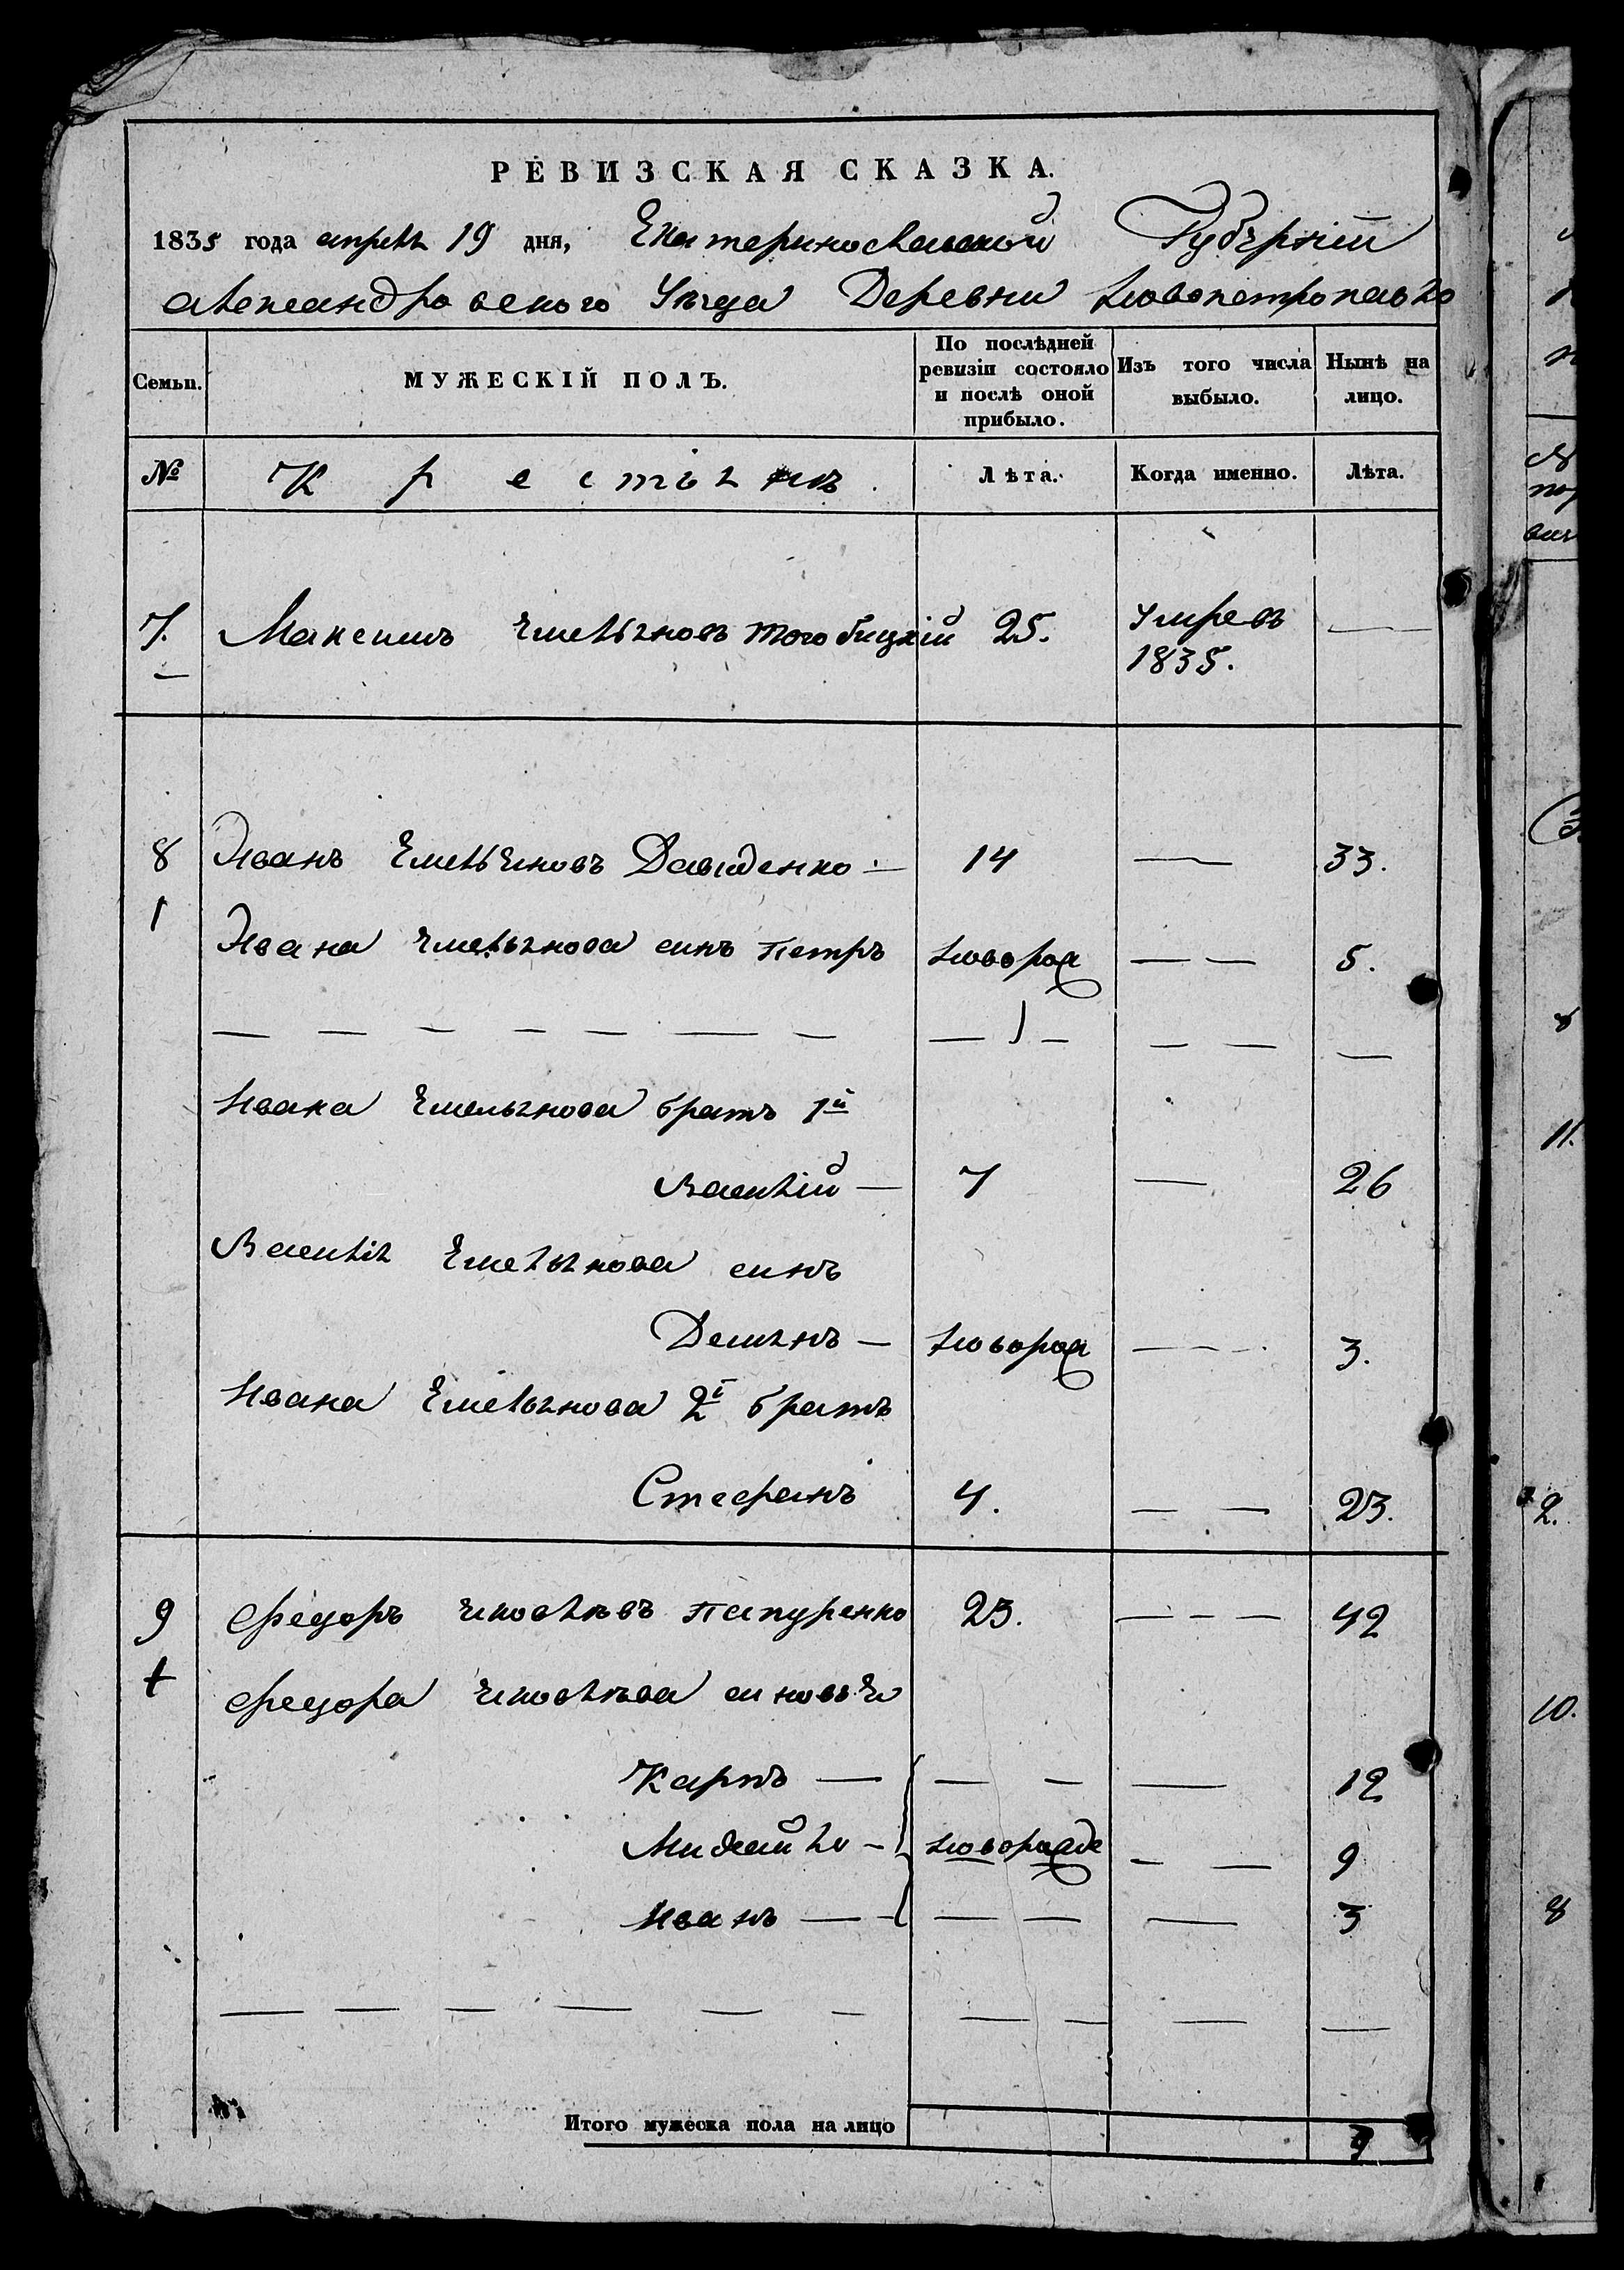 РЕВИЗСКАЯ СКАЗКА.
1835 года апреля 19 дня, Екатеринославской Губерніи
Александровского Уезда Деревни Новопетропавло
Семьи.
МУЖЕСКІЙ ПОЛЪ.
По послѣдней ревизіи состояло и послѣ оной прибыло.
Изъ того числа выбыло.
Нынѣ на лицо.
№ Крестьянъ. Лѣта. Когда именно. Лѣта.
7. Максимъ Емельяновъ 25. Умре въ
1835.
8 Иванъ Емельяновъ Давиденко 14 — 33.
1 Ивана Емельянова синъ Петръ новорож — 5.
Ивана Емельянова братъ 1й
Василій — 7 — 26
Василія Емельянова синъ
Демянъ — новорож — 3.
Ивана Емельянова 2й братъ
Стефанъ 4. — 23.
9 Федоръ Яковлевъ Папуренко 23. — 42
Федора Яковлева синовья
Карпъ — 12
Михайло — новорожде — 9
Иванъ — 3
Итого мужеска пола на лицо